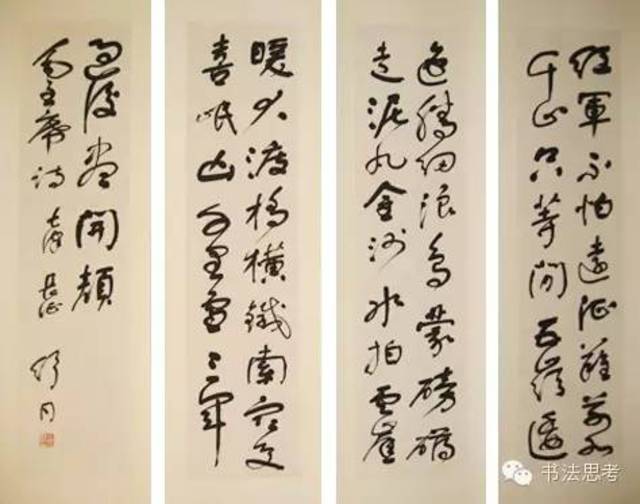 红軍不怕遠征難萬水
千山只等閒五嶺逶
迤騰细浪烏蒙磅礴
走泥丸金沙水拍雲崖
暖大渡橋横鐵索寒更
喜岷山千里雪三軍
過後盡開顏
毛主席诗 七律 長征 舒同
书法思考